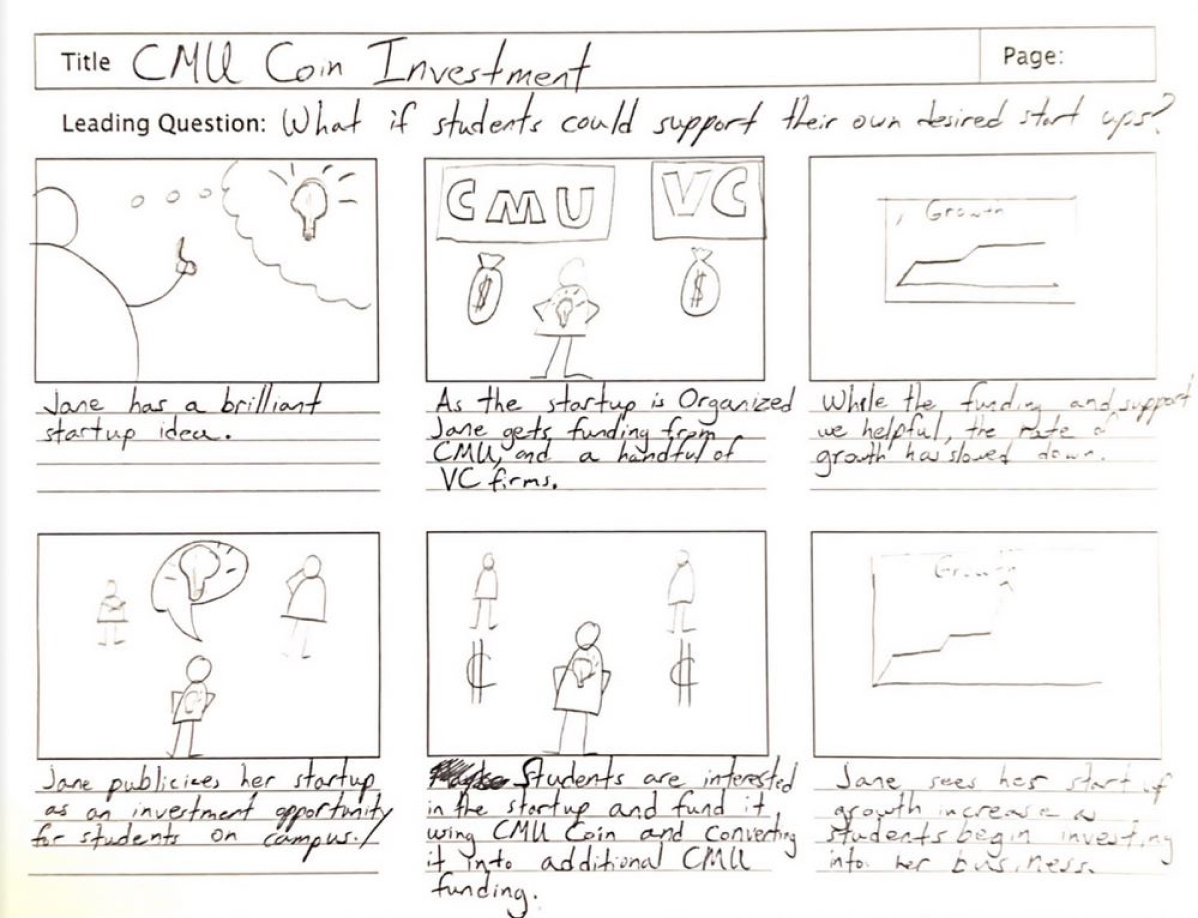 Title CMU Coin Investment
Page:
Leading Question: What if students could support their own desired start ups?
CMU
VC
$
$
Growth
Jane has a brilliant
startup idea.
As the startup is Organized
Jane gets funding from
CMU, and a handful of
VC firms.
While the funding and support
we helpful, the rate of
growth has slowed down.
Growth
Jane publicizes her startup
as an investment opportunity
for students on campus.
Students are interested
in the startup and fund it
using CMU Coin and converting
it into additional CMU
funding.
Jane sees her start up
growth increase as
students begin investing
into her business.